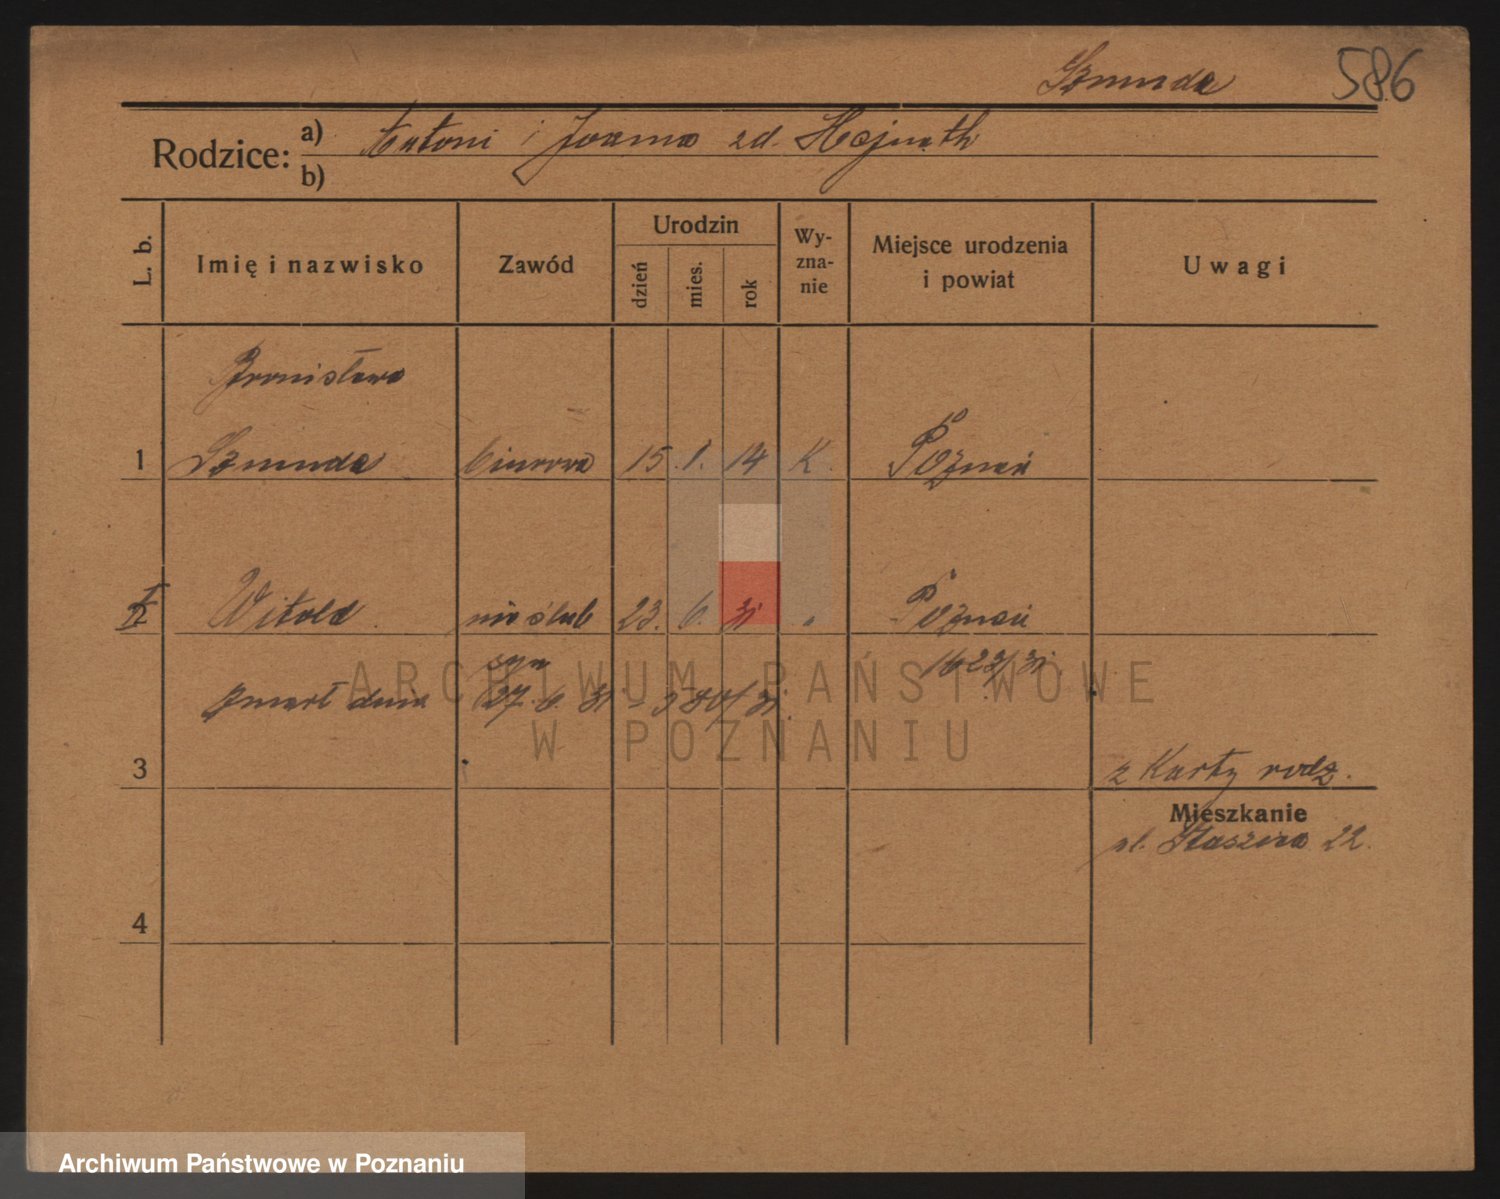 Szmuda 586
Rodzice: a) Antoni i Joanna zd. Hejnath
b)
L. b. Imię i nazwisko Zawód Urodzin dzień mies. rok Wy-zna-nie Miejsce urodzenia i powiat Uwagi
Bronisława
1 Szmuda biurowa 15. 1. 14 K. Poznań
I/2 Witold nieślub 23. 6. 31 " Poznań
syn 1623/31.
Zmarł dnia 27. 6. 31 -
3 z Karty rodz.
Mieszkanie
pl. Staszica 22.
4
ARCHIWUM PAŃSTWOWE
W POZNANIU
Archiwum Państwowe w Poznaniu